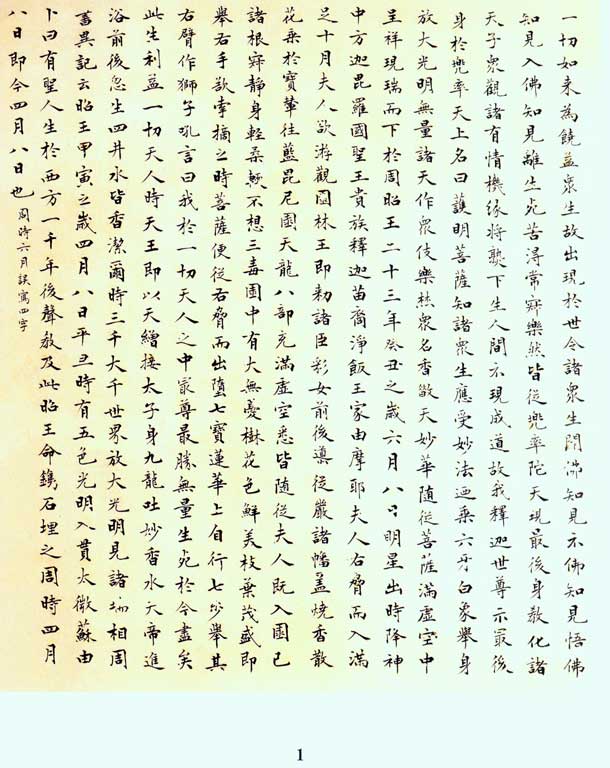 一切如来為饒益衆生故出現於世令諸衆生開佛知見示佛知見悟佛
知見入佛知見離生死苦得常寂樂然皆從兜率陀天現最後身教化諸
天子衆觀諸有情機緣將熟下生人間示現成道故我釋迦世尊示最後
身於兜率天上名曰護明菩薩知諸衆生應受妙法迺乗六牙白象舉身
放大光明無量諸天作衆伎樂爇衆名香散天妙華随從菩薩滿虚空中
呈祥現瑞而下於周昭王二十三年癸丑之歲六月八日明星出時降神
中方迦毘羅國聖王貴族釋迦苗裔淨飯王家由摩耶夫人右脅而入滿
足十月夫人欲游觀園林王即勅諸臣彩女前後導從嚴諸幡盖燒香散
花乗於寶輦往藍毘尼園天龍八部充滿虚空悉皆随從夫人既入園已
諸根寂靜身輕柔軟不想三毒園中有大無憂樹花色鮮美枝葉茂盛即
舉右手欲牽摘之時菩薩便從右脅而出墮七寶蓮華上自行七步舉其
右臂作獅子吼言曰我於一切天人之中最尊最勝無量生死於今盡矣
此生利益一切天人時天王即以天繒接太子身九龍吐妙香水天帝進
浴前後忽生四井水皆香潔爾時三千大千世界放大光明見諸瑞相周
書異記云昭王甲寅之歲四月八日平旦時有五色光明入貫太微蘇由
卜曰有聖人生於西方一千年後聲教及此昭王命鐫石埋之周時四月
八日即今四月八日也 周時六月誤寫四字
1